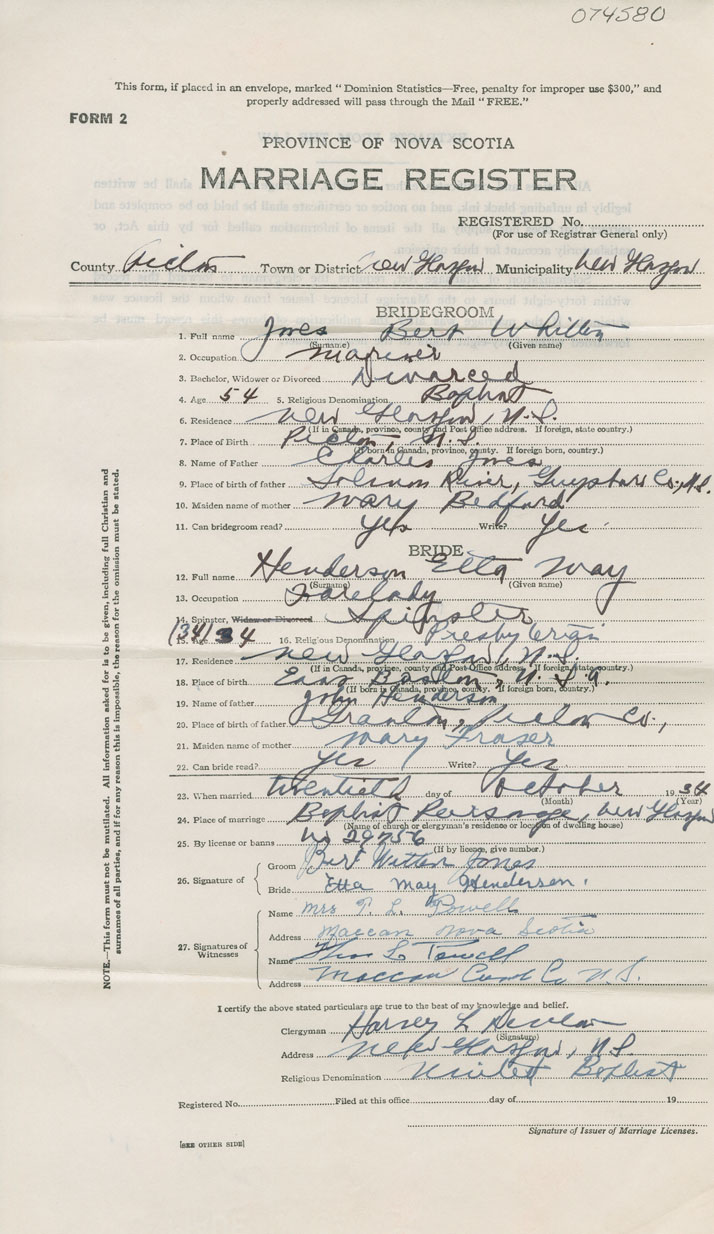 074580
This form, if placed in an envelope, marked "Dominion Statistics—Free, penalty for improper use $300," and
properly addressed will pass through the Mail "FREE."
FORM 2
PROVINCE OF NOVA SCOTIA
MARRIAGE REGISTER
REGISTERED No.
(For use of Registrar General only)
County Pictou Town or District New Glasgow Municipality New Glasgow
BRIDEGROOM
1. Full name Jones Bert Whitten
(Surname) (Given name)
2. Occupation Mariner
3. Bachelor, Widower or Divorced Divorced
4. Age 54 5. Religious Denomination Baptist
6. Residence New Glasgow, N.S.
(If in Canada, province, county and Post Office address. If foreign, state country.)
7. Place of Birth Pictou, N.S.
(If born in Canada, province, county. If foreign born, country.)
8. Name of Father Charles Jones
9. Place of birth of father River, Guysboro Co., N.S.
10. Maiden name of mother Mary Bedford
11. Can bridegroom read? Yes Write? Yes
BRIDE
12. Full name Henderson Etta May
(Surname) (Given name)
13. Occupation
14. Spinster, Widow or Divorced Spinster
(34) 15. Age 34 16. Religious Denomination Presbyterian
17. Residence New Glasgow, N.S.
(If in Canada, province, county and Post Office address. If foreign, state country.)
18. Place of birth East Boston, U.S.A.
(If born in Canada, province, county. If foreign born, country.)
19. Name of father John Henderson
20. Place of birth of father Granton, Pictou Co.,
21. Maiden name of mother Mary Fraser
22. Can bride read? Yes Write? Yes
23. When married twentieth day of October 1934
(Month) (Year)
24. Place of marriage Baptist Parsonage, New Glasgow
(Name of church or clergyman's residence or location of dwelling house)
25. By license or banns No 29256
(If by licence, give number.)
26. Signature of
Groom Bert Witten Jones
Bride Etta May Henderson.
27. Signatures of Witnesses
Name Mrs T. L. Powell
Address Maccan Nova Scotia
Name Thos L Powell
Address Maccan Cumb Co N.S.
NOTE.—This form must not be mutilated. All information asked for is to be given, including full Christian and
surnames of all parties, and if for any reason this is impossible, the reason for the omission must be stated.
I certify the above stated particulars are true to the best of my knowledge and belief.
Clergyman Harvey L
(Signature)
Address New Glasgow, N.S.
Religious Denomination United Baptist
Registered No. Filed at this office day of 19
Signature of Issuer of Marriage Licenses.
[SEE OTHER SIDE]